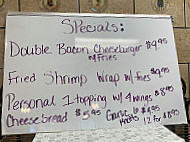 Specials:
Double Bacon Cheeseburger $9.95
w/fries
Fried Shrimp Wrap w/fries $9.95
Personal 1 topping w/ 4 wings $8.95
Cheesebread $5.95 Garlic Knots 6 $4.95
12 for $8.95